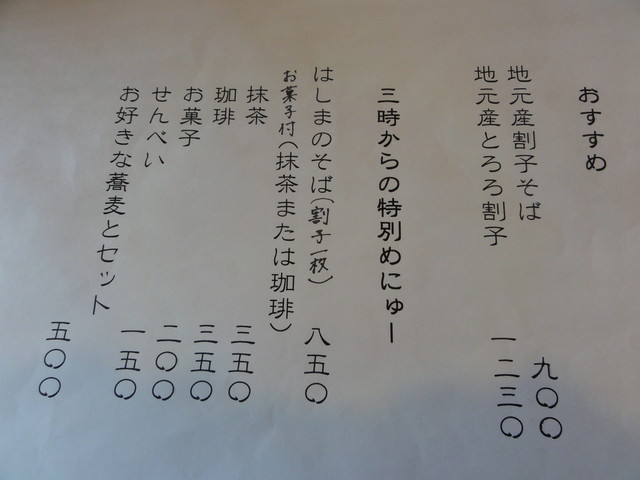 おすすめ
地元産割子そば 九〇〇
地元産とろろ割子 一二三〇
三時からの特別めにゅー
はしまのそば(割子一枚) 八五〇
お菓子付(抹茶または珈琲)
抹茶 三五〇
珈琲 三五〇
お菓子 二〇〇
せんべい 一五〇
お好きな蕎麦とセット 五〇〇